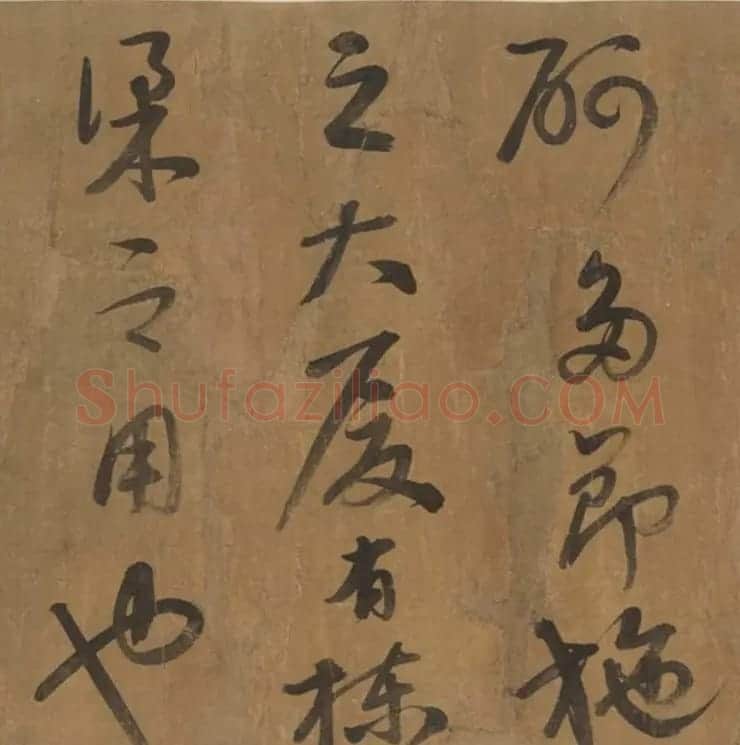 砢多節施
之大厦有棟
梁之用也
Shufaziliao.COM